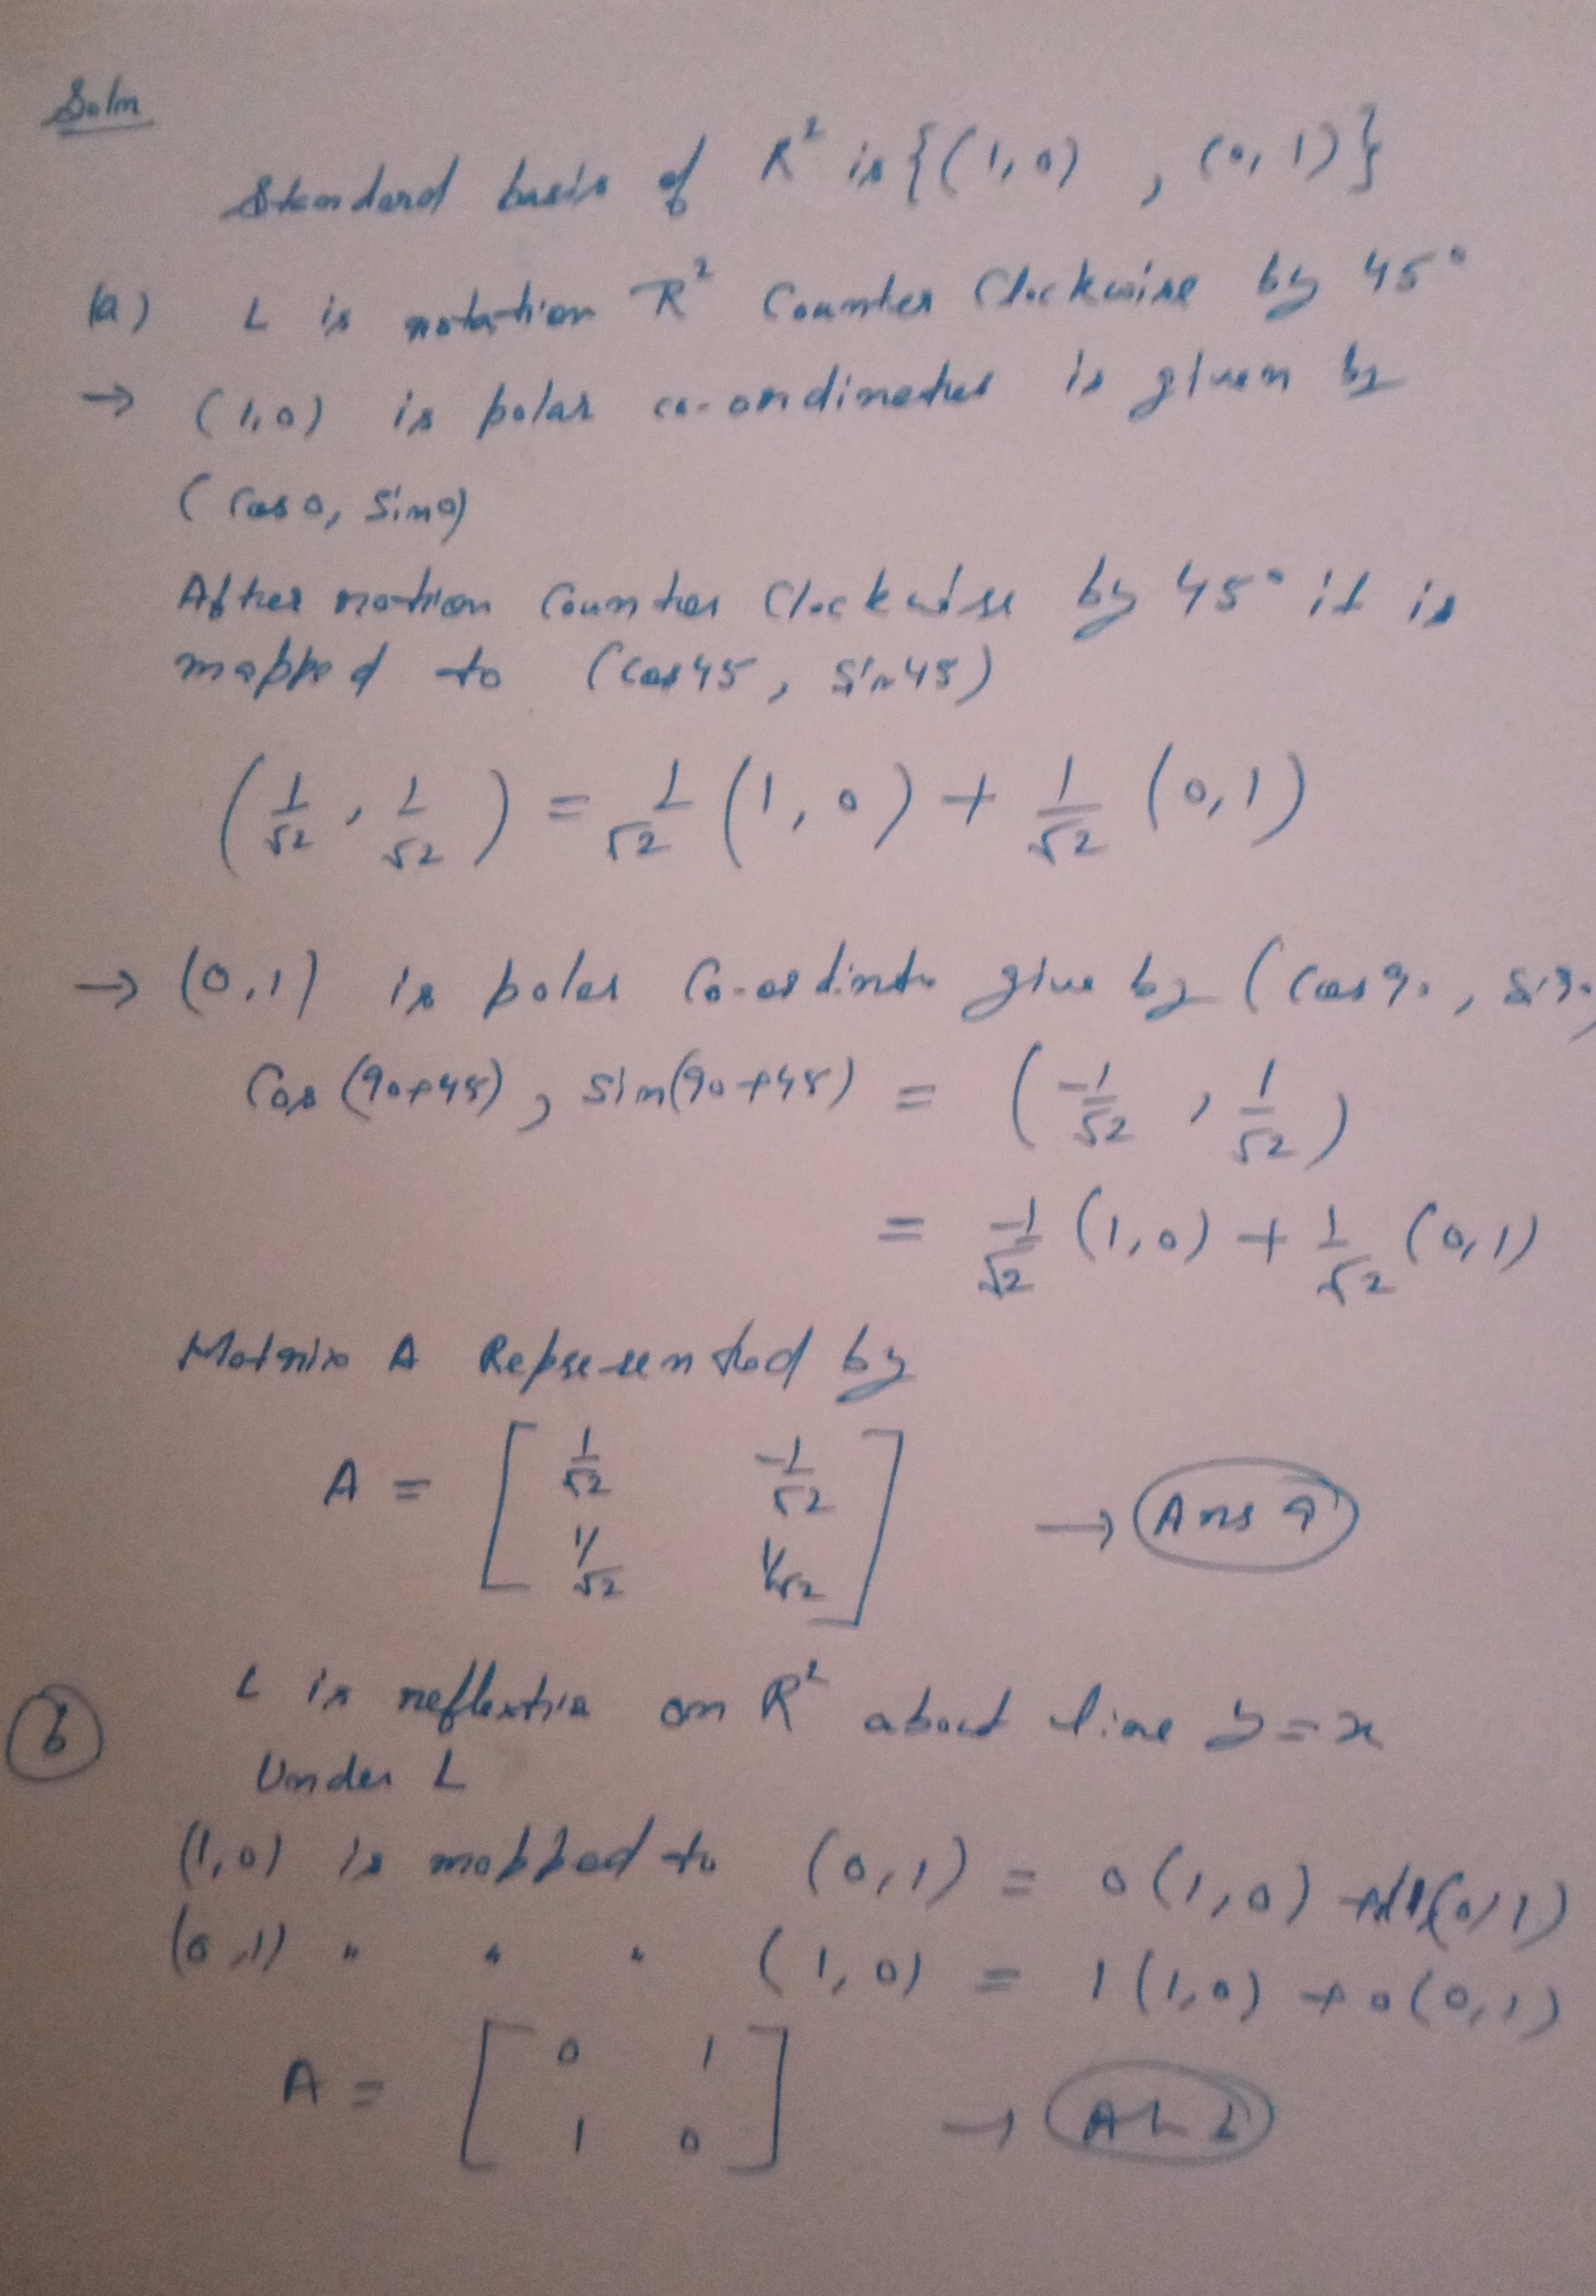 Soln
Standard basis of R² is {(1,0) , (0,1)}
(a) L is rotation R² Counter Clockwise by 45°
→ (1,0) is polar co-ordinates is given by
(Cos0, Sin0)
After rotion Counter Clockwise by 45° it is
mapped to (Cos45, Sin45)
(1/√2 , 1/√2) = 1/√2 (1,0) + 1/√2 (0,1)
→ (0,1) is polar Co-ordinate give by (Cos90,
Cos(90+45), Sin(90+45) = (-1/√2 , 1/√2)
= -1/√2 (1,0) + 1/√2 (0,1)
Matrix A Represented by
A = [ 1/√2 -1/√2
1/√2 1/√2 ] → Ans
b L is reflextion on R² about line y=x
Under L
(1,0) is mapped to (0,1) = 0(1,0) (0,1)
(0,1) " " " (1,0) = 1(1,0) + 0(0,1)
A = [ 0 1
1 0 ] →